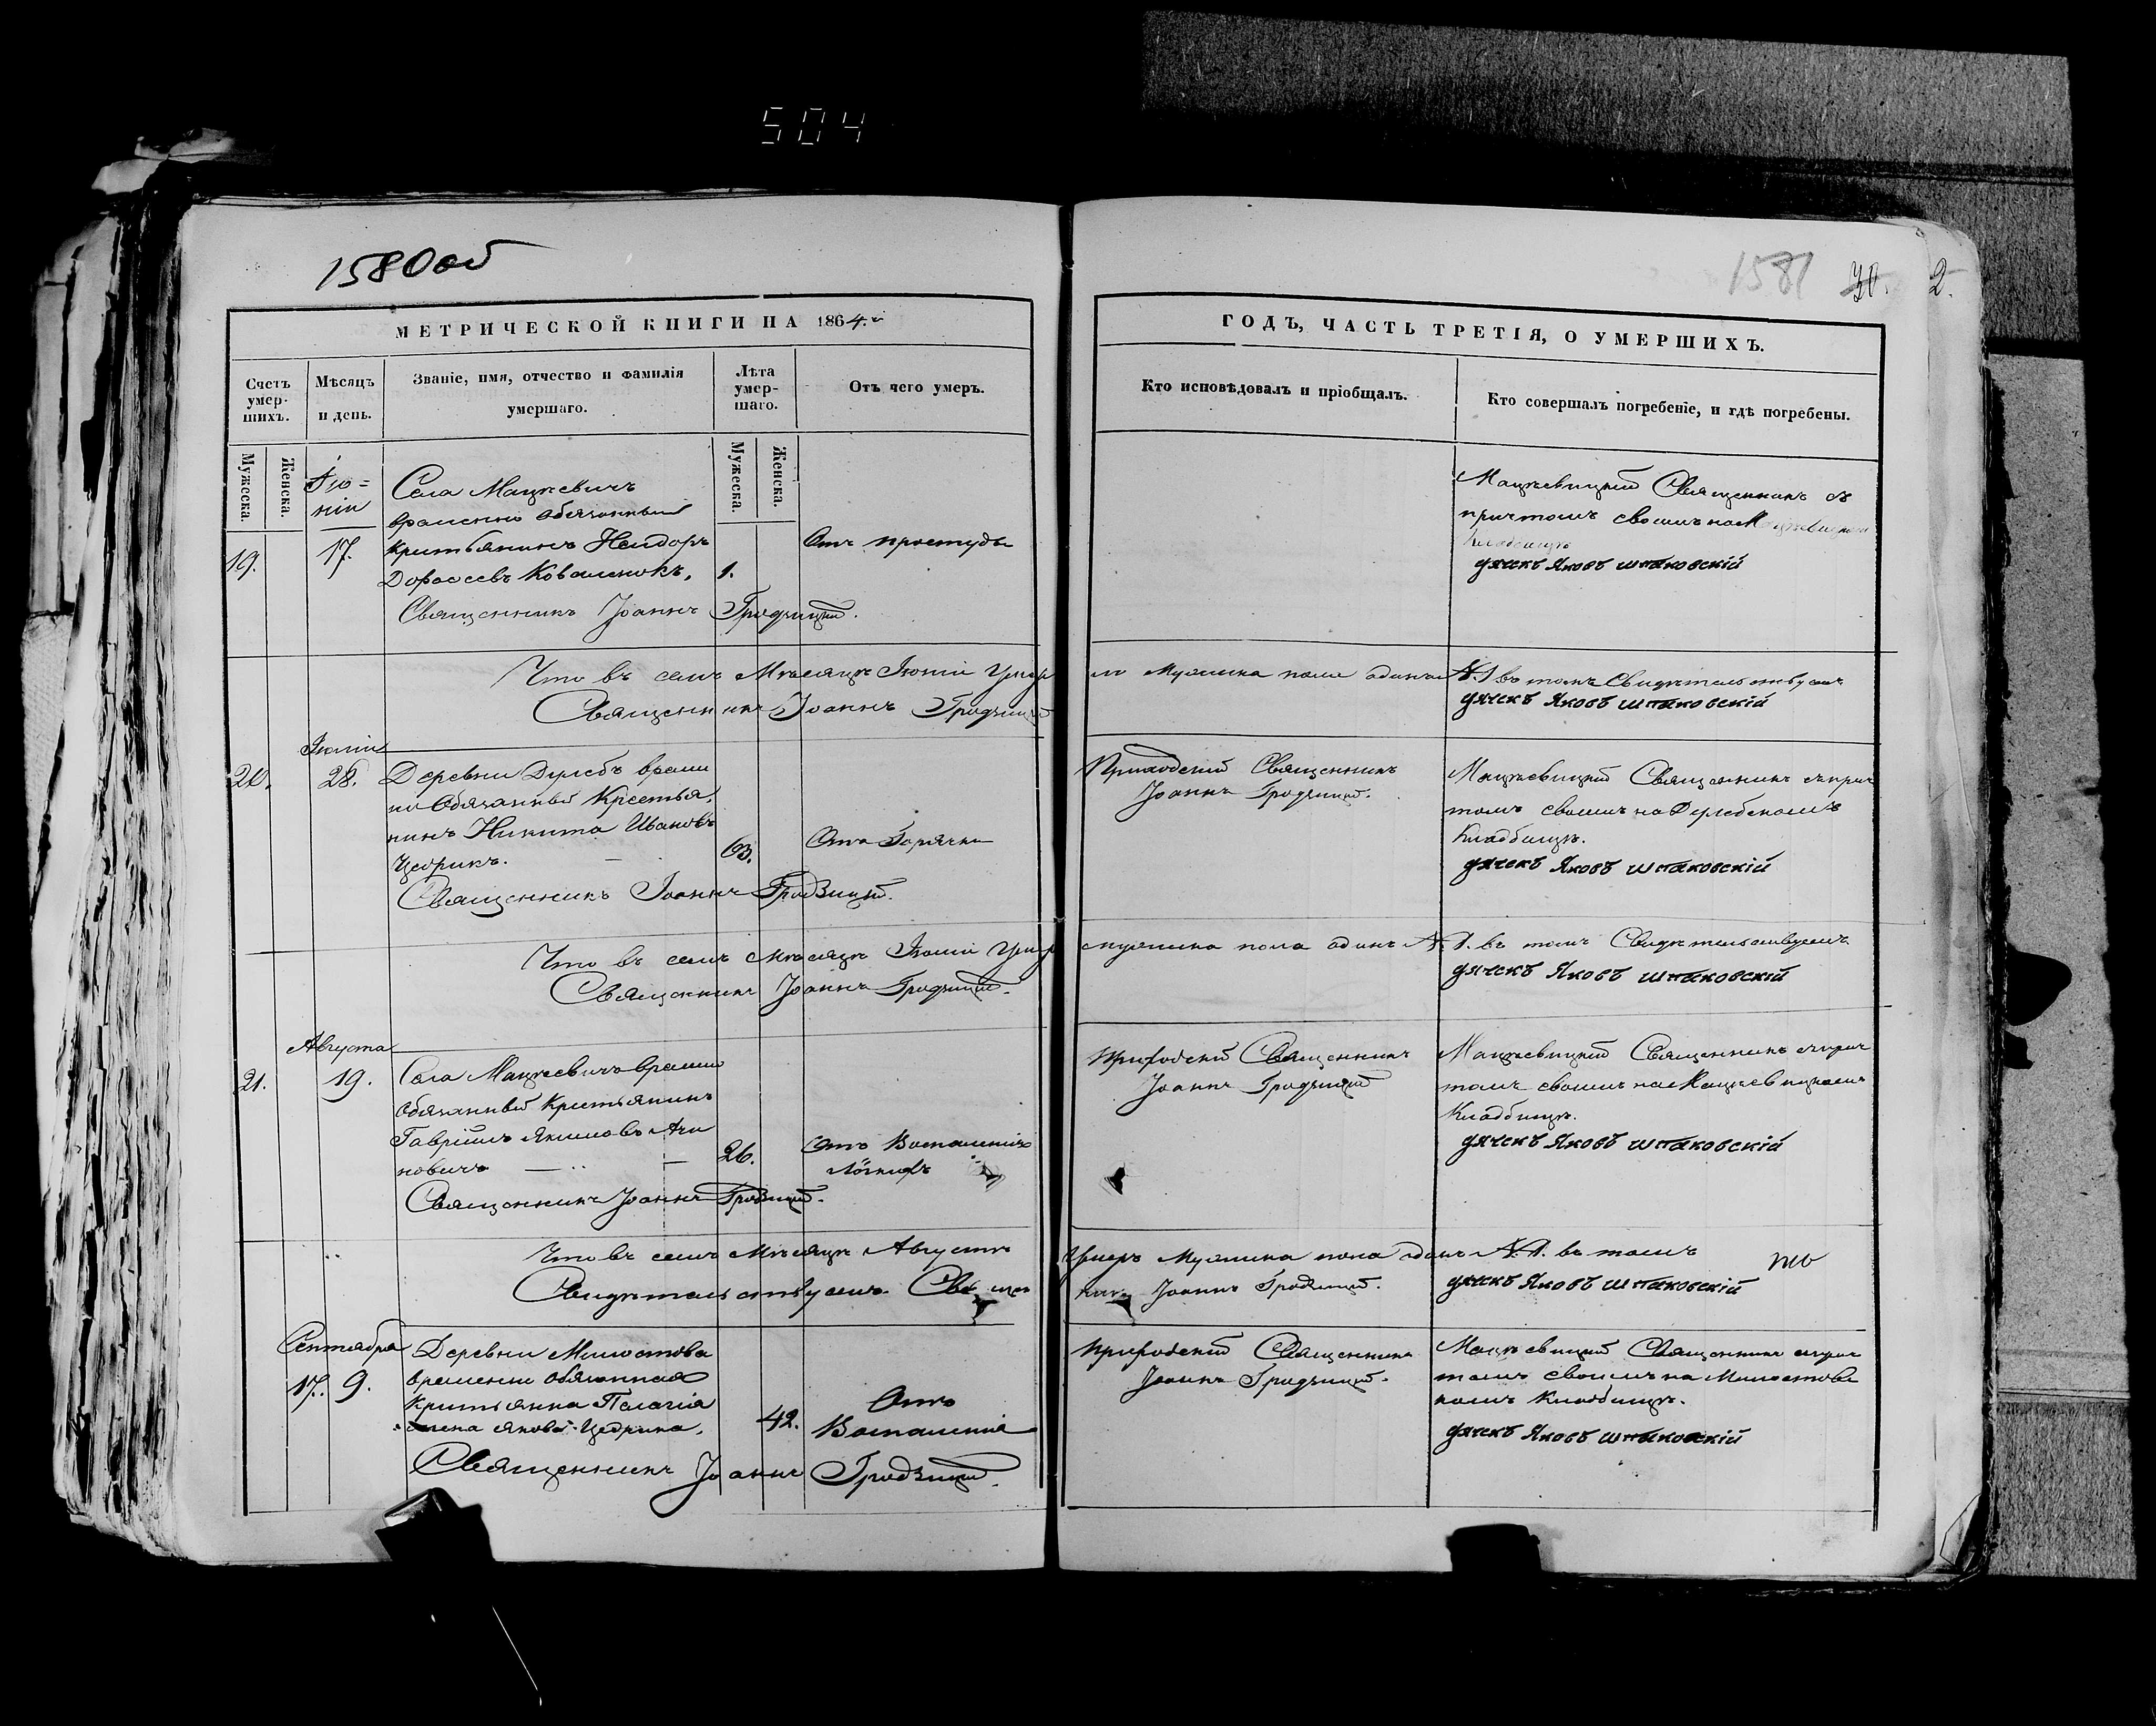 504
1580об
МЕТРИЧЕСКОЙ КНИГИ НА 1864.й
Счетъ умер-шихъ.
Мѣсяцъ и день.
Званіе, имя, отчество и фамилія умершаго.
Лѣта умер-шаго.
Отъ чего умеръ.
Мужеска.
Женска.
Мужеска.
Женска.
Іюніи
19.
17.
Села Мацкевичъ
временно обязанный
крестьянинъ
Дорофеевъ Коваленокъ,
1.
Отъ простуды
Священникъ Іоаннъ Гродзицкій.
Что въ семъ Мѣсяцѣ Іюніи Умер
Священникъ Іоаннъ Гродзицкій
Іюліи
20.
28.
Деревни Дулебъ времен
но Обязанный Крестья
нинъ Никита Ивановъ
Цедрикъ.
63.
Отъ Горячки
Священникъ Іоаннъ Гродзицкій.
Что въ семъ Мѣсяцѣ Іюліи Умер
Священникъ Іоаннъ Гродзицкій.
Августа
21.
19.
Села Мацкевичъ временно
Обязанный Крестьянинъ
Гавріилъ Якимовъ
новичъ
26.
Отъ Воспаленія
Лёгкихъ
Священникъ Іоаннъ Гродзицкій.
Что въ семъ Мѣсяцѣ Августѣ
Свидѣтельствуемъ Священ
Сентября
17.
9.
Деревни Милостова
временно обязанная
Крестьянка Пелагія
жена Якова Цедрика,
42.
Отъ
Воспаленія
Священникъ Іоаннъ Гродзицкій.
1581
30.
2.
ГОДЪ, ЧАСТЬ ТРЕТІЯ, О УМЕРШИХЪ.
Кто исповѣдовалъ и пріобщалъ.
Кто совершалъ погребеніе, и гдѣ погребены.
Мацкевицкій Священникъ съ
причтомъ своимъ на Мацкевицкомъ
Кладбищѣ
дячекъ Яковъ Шпаковскій
ло Мужеска пола одинъ №1 въ томъ Свидѣтельствуемъ
дячекъ Яковъ Шпаковскій
Приходскій Священникъ
Іоаннъ Гродзицкій.
Мацкевицкій Священникъ съ прич
томъ своимъ на Дулебскомъ
Кладбищѣ.
дячекъ Яковъ Шпаковскій
мужеска пола одинъ №1. въ томъ Свидѣтельствуемъ
дячекъ Яковъ Шпаковскій
Приходскій Священникъ
Іоаннъ Гродзицкій
Мацкевицкій Священникъ съ прич
томъ своимъ на Мацкевицкомъ
Кладбищѣ.
дячекъ Яковъ Шпаковскій
Умеръ Мужеска пола одинъ №1. въ томъ
никъ Іоаннъ Гродзицкій.
дячекъ Яковъ Шпаковскій
Приходскій Священникъ
Іоаннъ Гродзицкій.
Мацкевицкій Священникъ съ прич
томъ своимъ на Милостов
комъ Кладбищѣ.
дячекъ Яковъ Шпаковскій